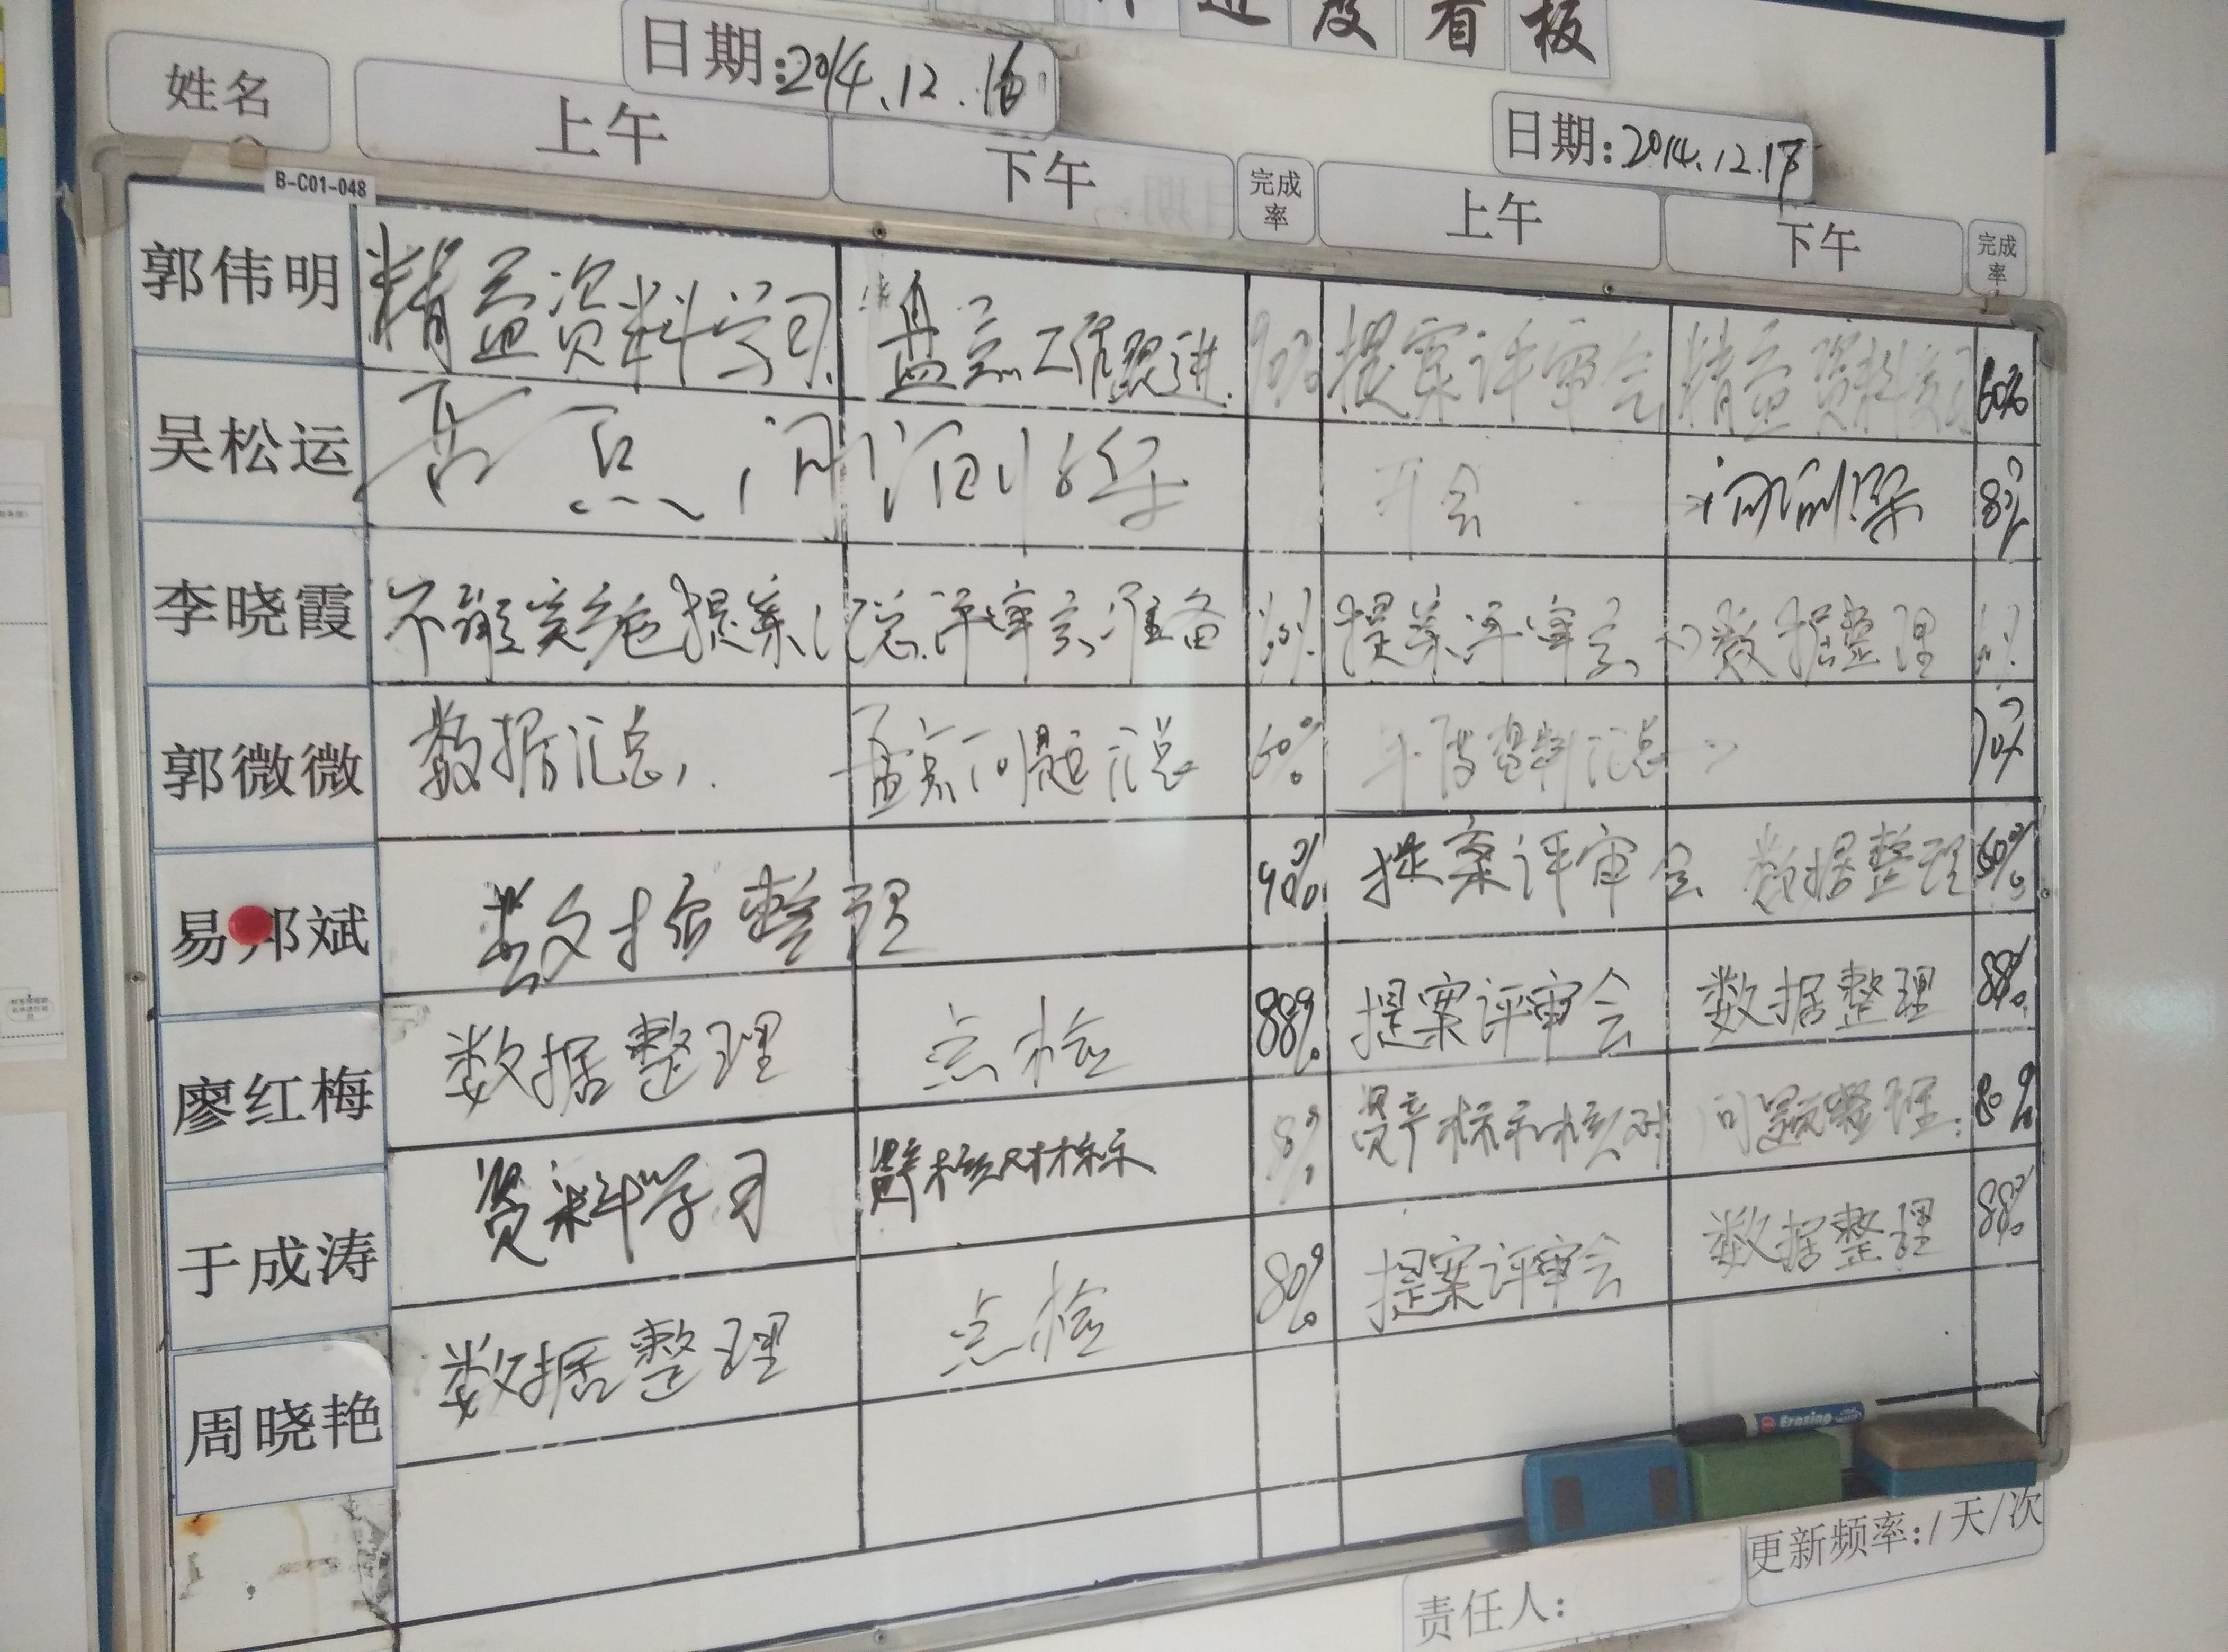 度看板
日期:2014.12.16
日期:2014.12.17
姓名 上午 下午 完成率 上午 下午 完成率
B-C01-048
郭伟明 精益资料学习 盘点工作跟进 提案评审会 精益资料 60%
吴松运 开会
李晓霞 提案汇总 评审会准备 提案评审会 数据整理
郭微微 数据汇总 盘点问题汇总 60% 年度资料汇总
易邦斌 数据整理 90% 提案评审会 数据整理 60%
廖红梅 数据整理 点检 88% 提案评审会 数据整理 88%
于成涛 资料学习 资产标示核对 问题整理 80%
周晓艳 数据整理 点检 80% 提案评审会 数据整理 88%
Erasing
更新频率:1天/次
责任人: